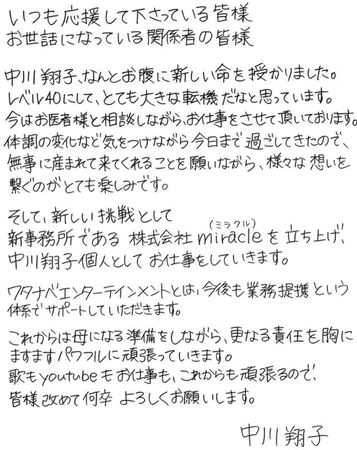 いつも応援して下さっている皆様
お世話になっている関係者の皆様
中川翔子、なんとお腹に新しい命を授かりました。
レベル40にして、とても大きな転機だなと思っています。
今はお医者様と相談しながら、お仕事をさせて頂いております。
体調の変化など気をつけながら今日まで過ごしてきたので、
無事に産まれて来てくれることを願いながら、様々な想いを
繋ぐのがとても楽しみです。
そして、新しい挑戦として
(ミラクル)
新事務所である 株式会社miracleを立ち上げ、
中川翔子個人としてお仕事をしていきます。
ワタナベエンターテインメントとは、今後も業務提携という
体系でサポートしていただきます。
これからは母になる準備をしながら、更なる責任を胸に
ますますパワフルに頑張っていきます。
歌もyoutubeもお仕事も、これからも頑張るので、
皆様改めて何卒よろしくお願いします。
中川翔子